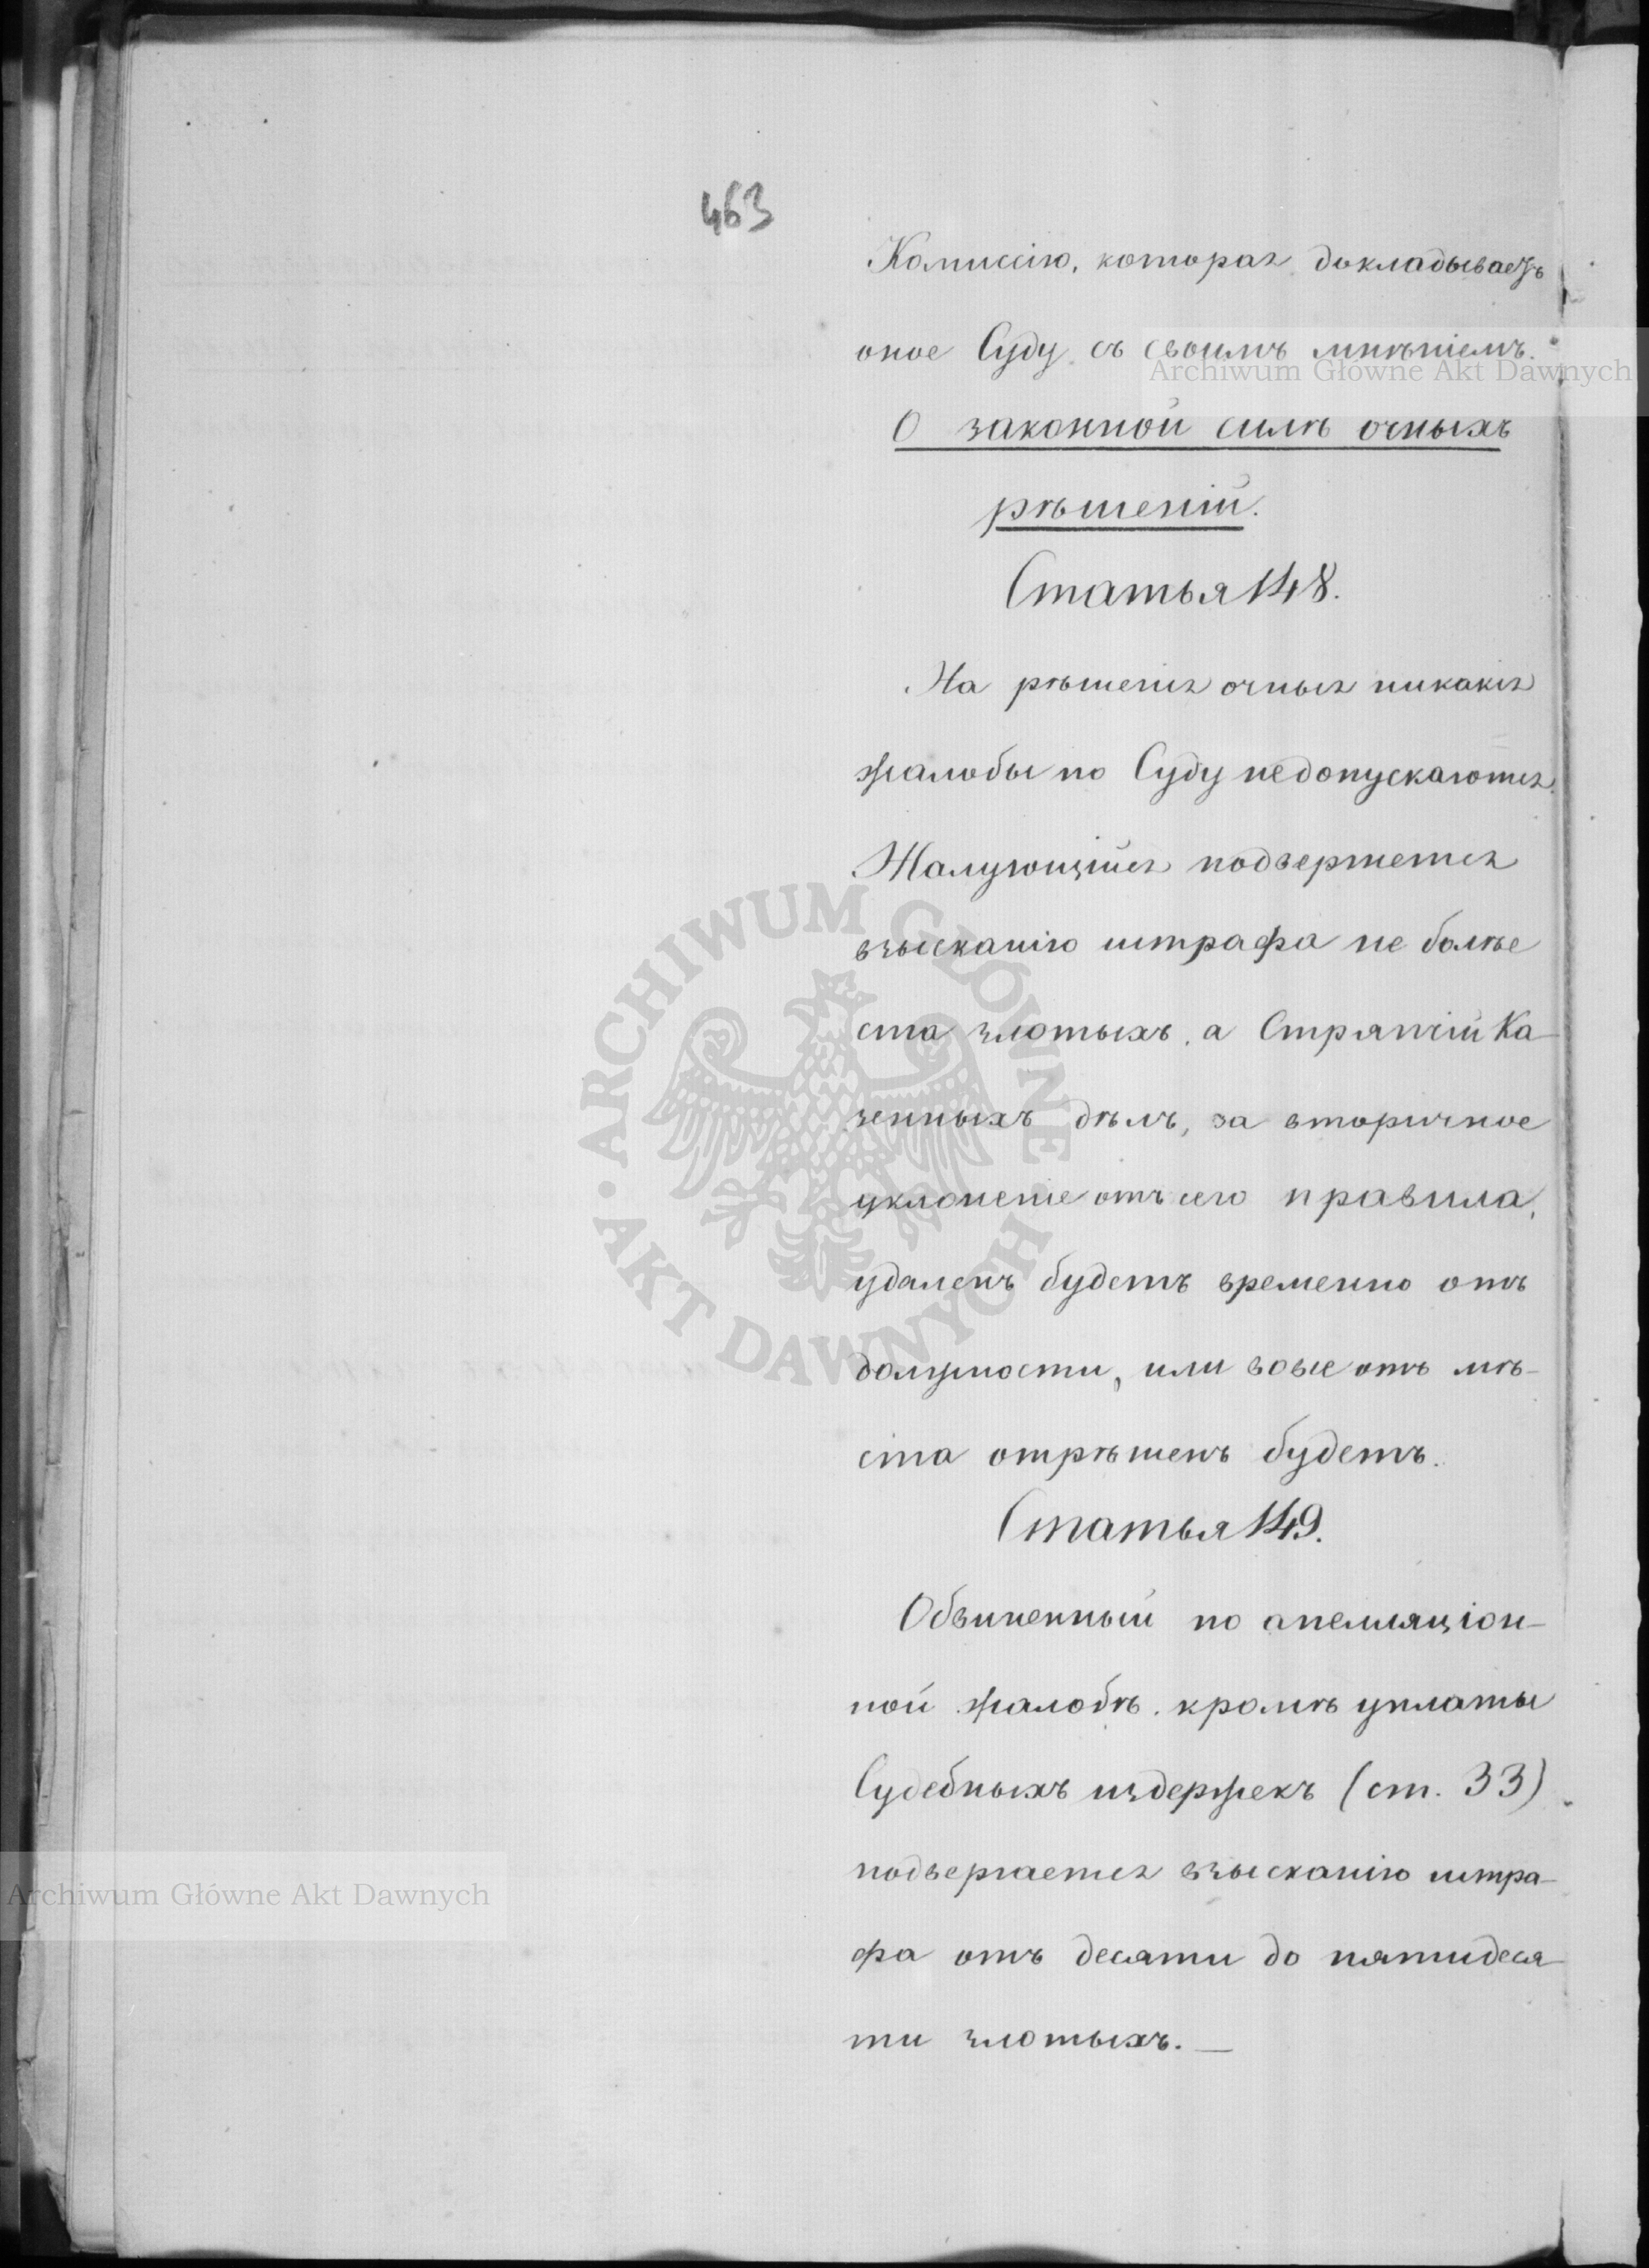 463
Комиссію, которая докладываетъ
оное Суду съ своимъ мнѣніемъ.
О законной силѣ очныхъ
рѣшеній.
Статья 148.
На рѣшенія очныя никакія
жалобы по Суду недопускаются.
Жалующійся подвержется
взысканію штрафа не болѣе
ста злотыхъ, а Стряпчій Ка-
зенныхъ дѣлъ, за вторичное
уклоненіе отъ сего правила,
удаленъ будетъ временно отъ
должности, или вовсе отъ мѣ-
ста отрѣшенъ будетъ.
Статья 149.
Обвиненный по апелляціон-
ной жалобѣ, кромѣ уплаты
Судебныхъ издержекъ (ст. 33)
подвергается взысканію штра-
фа отъ десяти до пятидеся-
ти злотыхъ.—
Archiwum Główne Akt Dawnych
ARCHIWUM GŁÓWNE · AKT DAWNYCH ·
Archiwum Główne Akt Dawnych